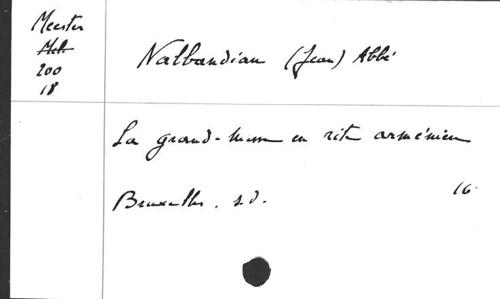 Meester
Mel.
200
18
Nalbandian (Jean) Abbé
La grand-messe en rite arménien
Bruxelles. s.d.
16